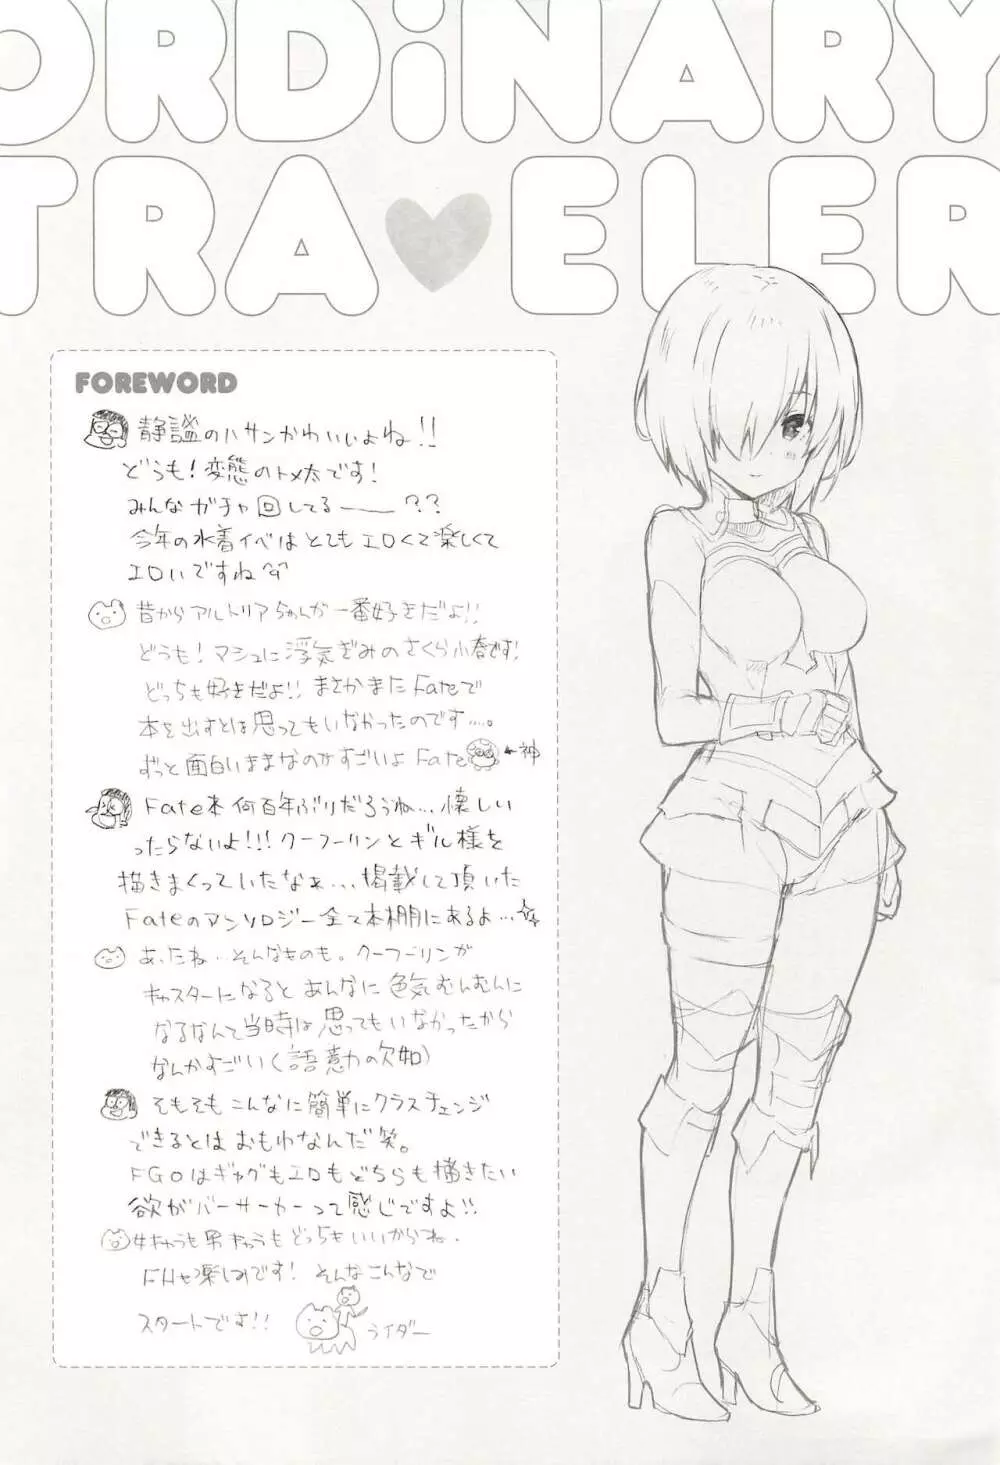 ORDiNARY
TRA♥ELER
FOREWORD
静謐のハサンかわいいよね!!
どうも!変態のトメ太です!
みんなガチャ回してるーーー??
今年の水着イベはとてもエロくて楽しくて
エロいですね
昔からアルトリアちゃんが一番好きだよ!!
どうも!マシュに浮気ぎみのさくら小春です!
どっちも好きだよ!!まさかまたFateで
本を出すとは思ってもいなかったのです....。
ずっと面白いままなのがすごいよFate ←神
Fate本何百年ぶりだろうね...懐しい
ったらないよ!!!クーフーリンとギル様を
描きまくっていたなぁ...掲載して頂いた
Fateのアンソロジー全て本棚にあるよ...☆
あったね...そんなものも。クーフーリンが
キャスターになるとあんなに色気むんむんに
なるなんて当時は思ってもいなかったから
なんかすごい(語意力の欠如)
そもそもこんなに簡単にクラスチェンジ
できるとはおもわなんだ笑。
FGOはギャグもエロもどちらも描きたい
欲がバーサーカーって感じですよ!!
女キャラも男キャラもどっちもいいからね.
楽しみです!そんなこんなで
スタートです!!
ライダー